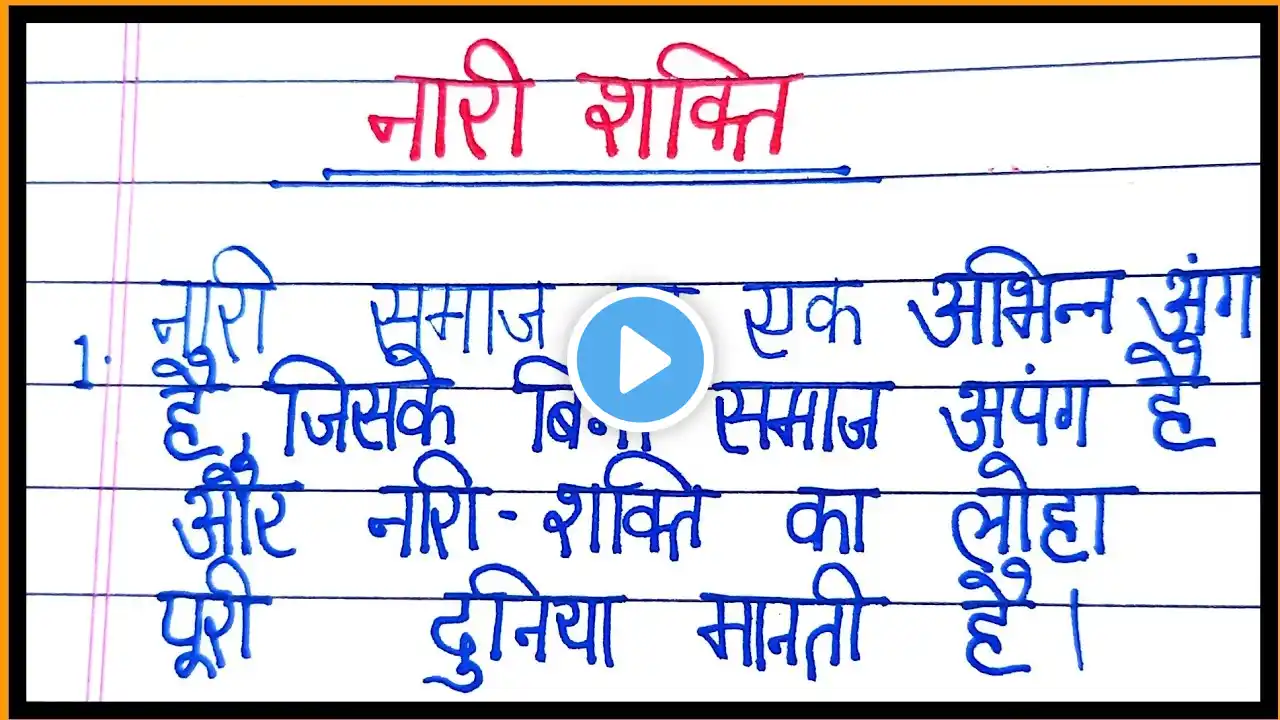 नारी शक्ति
1. नारी समाज एक अभिन्न अंग
है, जिसके बिना समाज अपंग है
और नारी-शक्ति का लोहा
पूरी दुनिया मानती है।